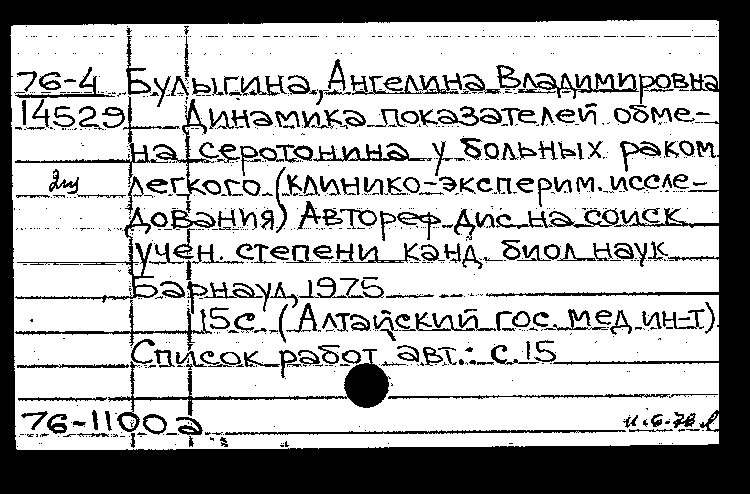 76-4 Булыгина, Ангелина Владимировна
14529 Динамика показателей обме-
на серотонина у больных раком
легкого (клинико-эксперим. иссле-
дования) Автореф дис на соиск
учен. степени канд. биол наук
Барнаул, 1975
15с. (Алтайский гос. мед ин-т)
Список работ авт.: с. 15
76-1100а